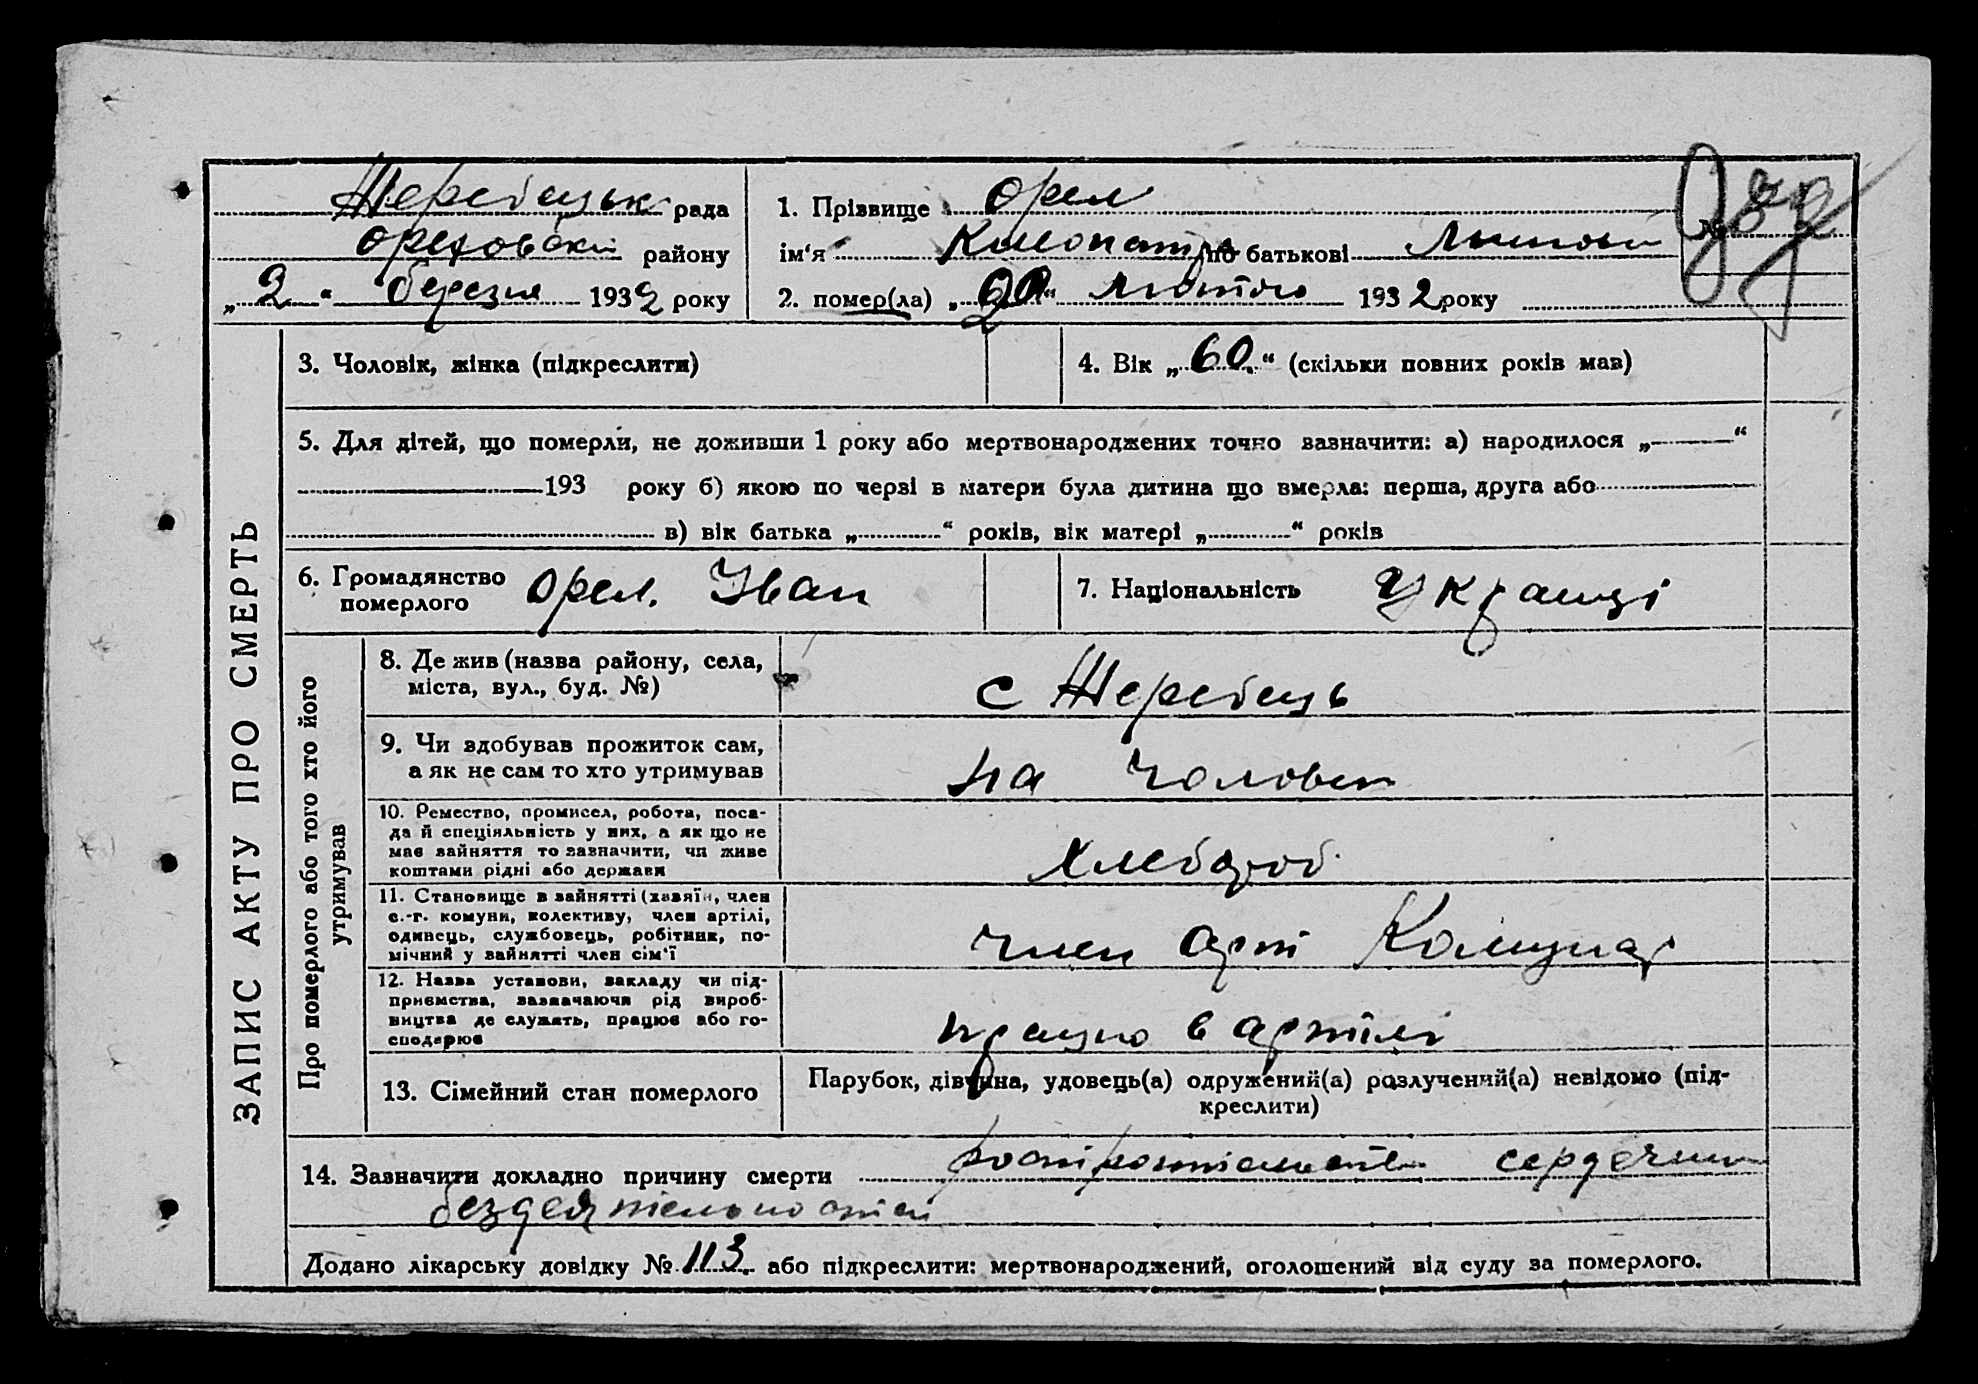 Жеребецьк рада
Ореховски району
„2“ березня 1932 року
1. Прізвище Орел
ім‘я Клеопатра по батькові
2. помер(ла) „20“ лютого 1932 року
ЗАПИС АКТУ ПРО СМЕРТЬ
3. Чоловік, жінка (підкреслити)
4. Вік „60“ (скільки повних років мав)
5. Для дітей, що померли, не доживши 1 року або мертвонароджених точно зазначити: а) народилося „ “
193 року б) якою по черзі в матери була дитина що вмерла: перша, друга або
в) вік батька „ “ років, вік матері „ “ років
6. Громадянство
померлого
Орел. Іван
7. Національність Українці
Про померлого або того хто його
утримував
8. Де жив (назва району, села,
міста, вул., буд. №)
с Жеребець
9. Чи здобував прожиток сам,
а як не сам то хто утримував
на чоловік
10. Ремество, промисел, робота, поса-
да й спеціяльність у них, а як що не
має зайняття то зазначити, чи живе
коштами рідні або держави
Хлебороб
11. Становище в зайнятті (хазяїн, член
с.-г. комуни, колективу, член артілі,
одинець, службовець, робітник, по-
мічний у зайнятті член сім‘ї
член арт Комунар
12. Назва установи, закладу чи під-
приємства, зазначаючи рід вироб-
ництва де служать, працює або го-
сподарює
працую в артілі
13. Сімейний стан померлого
Парубок, дівчина, удовець(а) одружений(а) розлучений(а) невідомо (під-
креслити)
14. Зазначити докладно причину смерти сердечни
бездеятельности
Додано лікарську довідку № 113 або підкреслити: мертвонароджений, оголошений від суду за померлого.